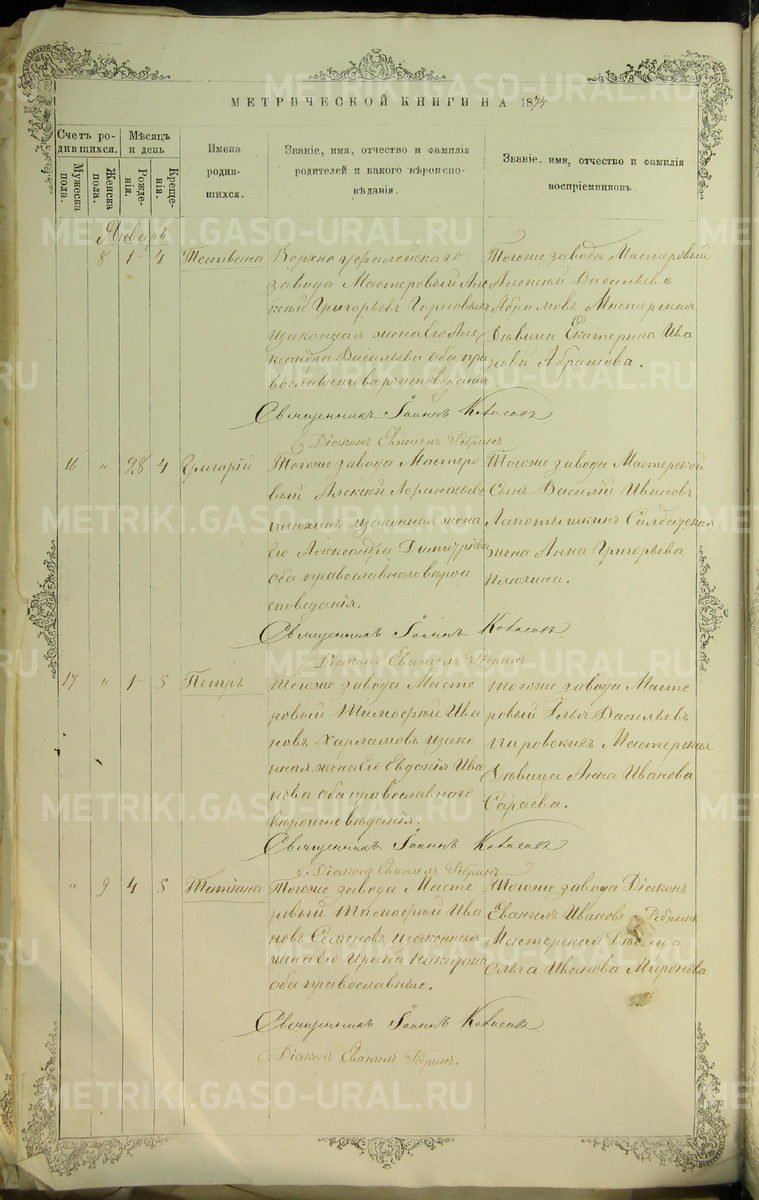 МЕТРИЧЕСКОЙ КНИГИ НА 1874
Счетъ ро-
дившихся.
Мужеска
пола.
Женска
пола.
Мѣсяцъ
и день
Рожде-
нія.
Креще-
нія.
Имена
родив-
шихся.
Званіе, имя, отчество и фамилія
родителей и какого вѣроиспо-
вѣданія.
Званіе, имя, отчество и фамилія
воспріемниковъ.
Январь
8 1 4 Татіана
Верхно уфалейскаго
завода Мастеровый Але
ксѣй Григорьевъ
изаконная жена Его Але
ксандра Васильева оба пра
вославнаго вѣроисповеданія
Тогоже завода Мастеровый
Алексѣй Васильевъ
Абрамовъ Мастерская
Дѣвица Екатерина Ива
нова Абрамова.
Священникъ Іоаннъ
Діаконъ Евангелъ Ребринъ
16 " 28 4 Григорій
Тогоже завода Мастеро
вый Алексѣй
Плюхинъ изаконная жена
Его Александра Димитріева
оба православнаго вѣрои
споведанія.
Тогоже завода Мастерской
Сынъ Василій Ивановъ
Лапотышкинъ Солдатская
жена Анна Григорьева
Плюхина.
Священникъ Іоаннъ
Діаконъ Евангелъ Ребринъ
17 " 1 5 Петръ
Тогоже завода Масте
ровый Тимофѣй Ива
новъ Харламовъ изако
нная жена Его Евдокія Ива
нова оба православнаго
вѣроисповѣданія.
Тогоже завода Масте
ровый Илья Васильевъ
Пировскихъ Мастерская
Дѣвица Анна Иванова
Сараева.
Священникъ Іоаннъ
Діаконъ Евангелъ Ребринъ
" 9 4 5 Татіана
Тогоже завода Масте
ровый Тимофѣй Ива
новъ Семеновъ изаконная
жена Его Ирина
оба православные.
Тогоже завода Діаконъ
Евангелъ Ивановъ Ребринъ
Мастерская Дѣвица
Ольга Иванова Миронова
Священникъ Іоаннъ
Діаконъ Евангелъ Ребринъ.
METRIKI.GASO-URAL.RU